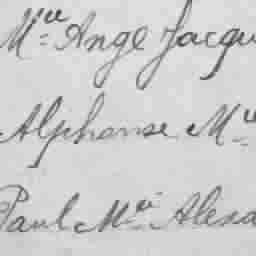 M.ie Ange Jacqu
Alphonse M.ie
Paul M.ie Alexa